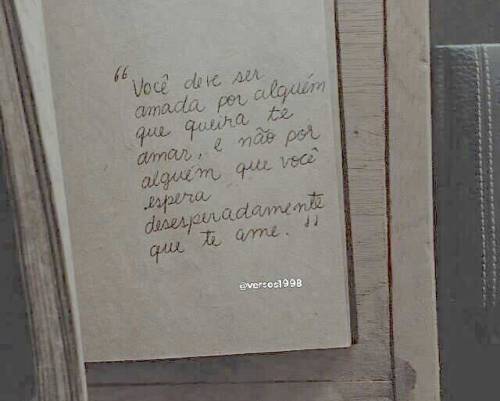 “ Você deve ser
amada por alguém
que queira te
amar, e não por
alguém que você
espera
desesperadamente
que te ame. ”
@versos1998